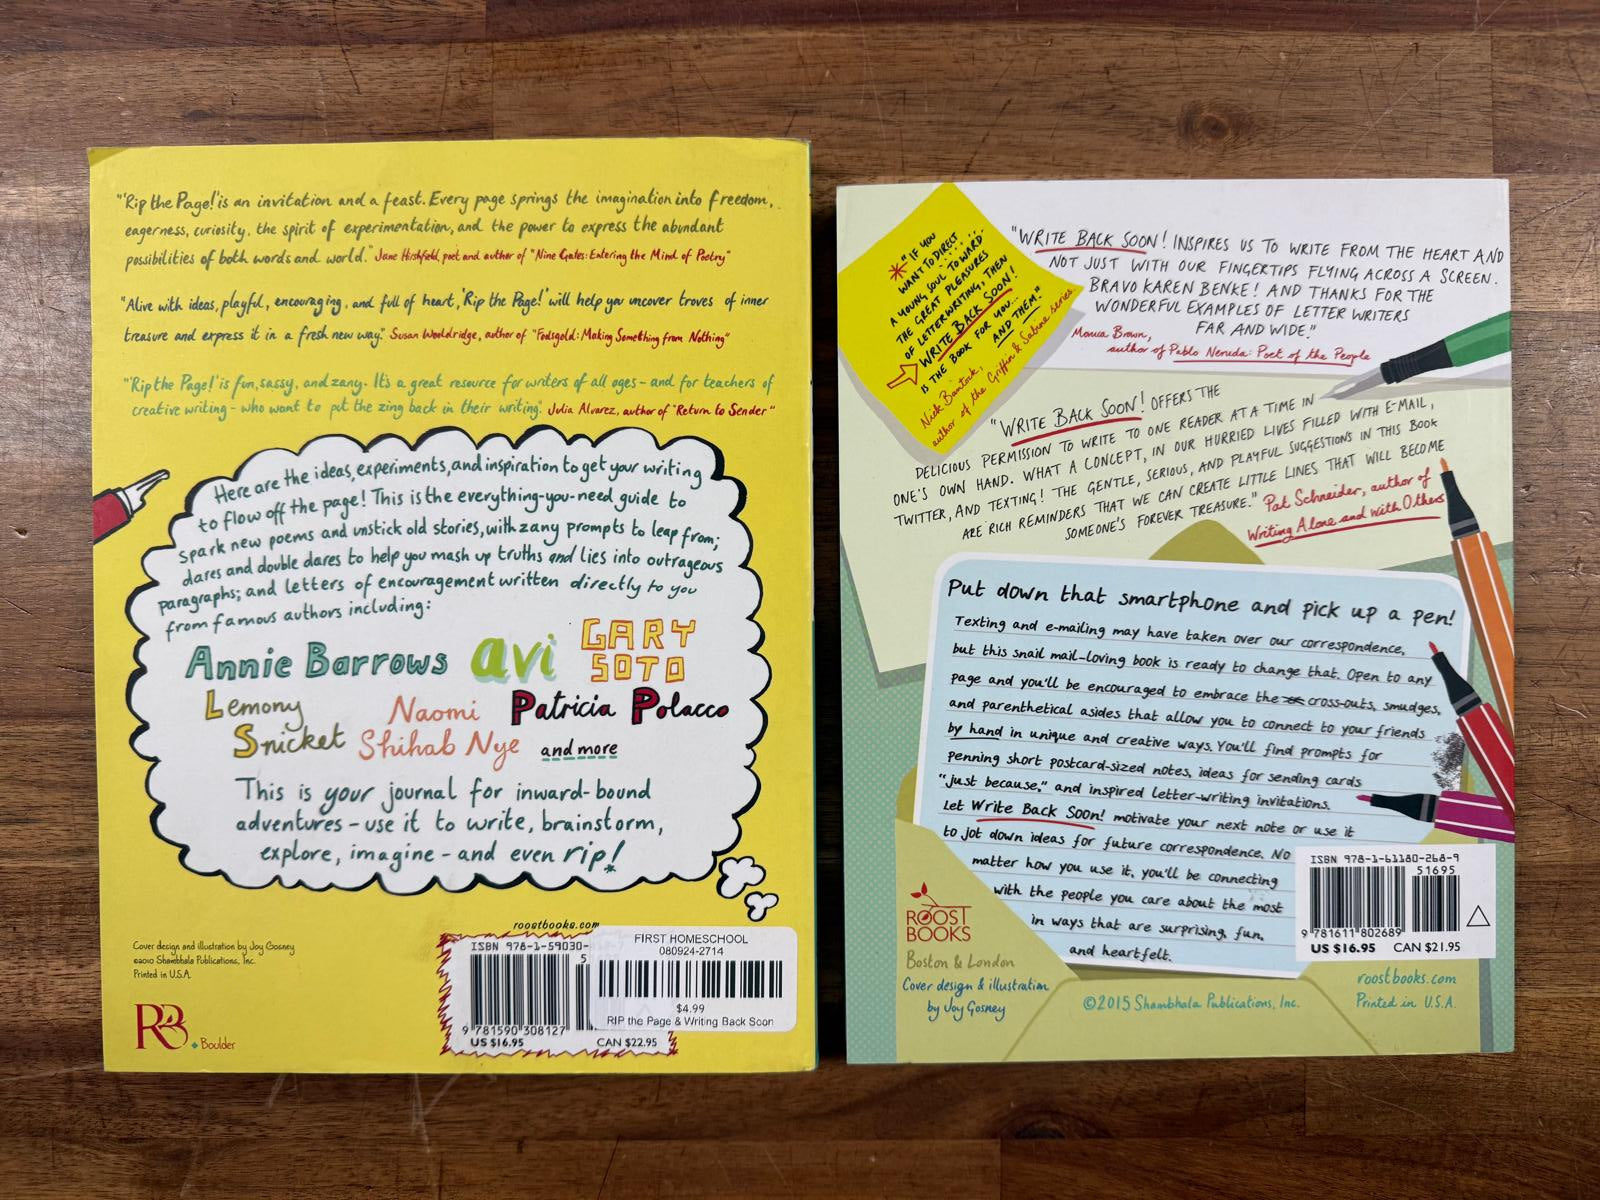 "'Rip the Page!' is an invitation and a feast. Every page springs the imagination into freedom,
eagerness, curiosity, the spirit of experimentation, and the power to express the abundant
possibilities of both words and world." Jane Hirshfield, poet and author of "Nine Gates: Entering the Mind of Poetry"
"Alive with ideas, playful, encouraging, and full of heart, 'Rip the Page!' will help you uncover troves of inner
treasure and express it in a fresh new way." Susan Wooldridge, author of "Foolsgold: Making Something from Nothing"
"'Rip the Page!' is fun, sassy, and zany. It's a great resource for writers of all ages – and for teachers of
creative writing – who want to put the zing back in their writing." Julia Alvarez, author of "Return to Sender"
Here are the ideas, experiments, and inspiration to get your writing
to flow off the page! This is the everything-you-need guide to
spark new poems and unstick old stories, with zany prompts to leap from;
dares and double dares to help you mash up truths and lies into outrageous
paragraphs; and letters of encouragement written directly to you
from famous authors including:
Annie Barrows avi GARY
SOTO
Lemony
Snicket
Naomi
Shihab Nye
Patricia Polacco
and more
This is your journal for inward-bound
adventures – use it to write, brainstorm,
explore, imagine – and even rip!
roostbooks.com
Cover design and illustration by Joy Gosney
©2010 Shambhala Publications, Inc.
Printed in U.S.A.
RB
Boulder
ISBN 978-1-59030-
5
9 781590 308127
US $16.95 CAN $22.95
FIRST HOMESCHOOL
080924-2714
$4.99
RIP the Page & Writing Back Soon
"IF YOU
WANT TO DIRECT
A YOUNG SOUL TOWARD
THE GREAT PLEASURES
OF LETTER WRITING, THEN
WRITE BACK SOON!
IS THE BOOK FOR YOU...
AND THEM."
Nick Bantock,
author of the Griffin & Sabine series
"WRITE BACK SOON! INSPIRES US TO WRITE FROM THE HEART AND
NOT JUST WITH OUR FINGERTIPS FLYING ACROSS A SCREEN.
BRAVO KAREN BENKE! AND THANKS FOR THE
WONDERFUL EXAMPLES OF LETTER WRITERS
FAR AND WIDE."
Monica Brown,
author of Pablo Neruda: Poet of the People
"WRITE BACK SOON! OFFERS THE
DELICIOUS PERMISSION TO WRITE TO ONE READER AT A TIME IN
ONE'S OWN HAND. WHAT A CONCEPT, IN OUR HURRIED LIVES FILLED WITH E-MAIL,
TWITTER, AND TEXTING! THE GENTLE, SERIOUS, AND PLAYFUL SUGGESTIONS IN THIS BOOK
ARE RICH REMINDERS THAT WE CAN CREATE LITTLE LINES THAT WILL BECOME
SOMEONE'S FOREVER TREASURE." Pat Schneider, author of
Writing Alone and with Others
Put down that smartphone and pick up a pen!
Texting and e-mailing may have taken over our correspondence,
but this snail mail-loving book is ready to change that. Open to any
page and you'll be encouraged to embrace the cross-outs, smudges,
and parenthetical asides that allow you to connect to your friends
by hand in unique and creative ways. You'll find prompts for
penning short postcard-sized notes, ideas for sending cards
"just because," and inspired letter-writing invitations.
Let Write Back Soon! motivate your next note or use it
to jot down ideas for future correspondence. No
matter how you use it, you'll be connecting
with the people you care about the most
in ways that are surprising, fun,
and heartfelt.
ROOST
BOOKS
Boston & London
Cover design & illustration
by Joy Gosney
©2015 Shambhala Publications, Inc.
ISBN 978-1-61180-268-9
51695
9 781611 802689
US $16.95 CAN $21.95
roostbooks.com
Printed in U.S.A.